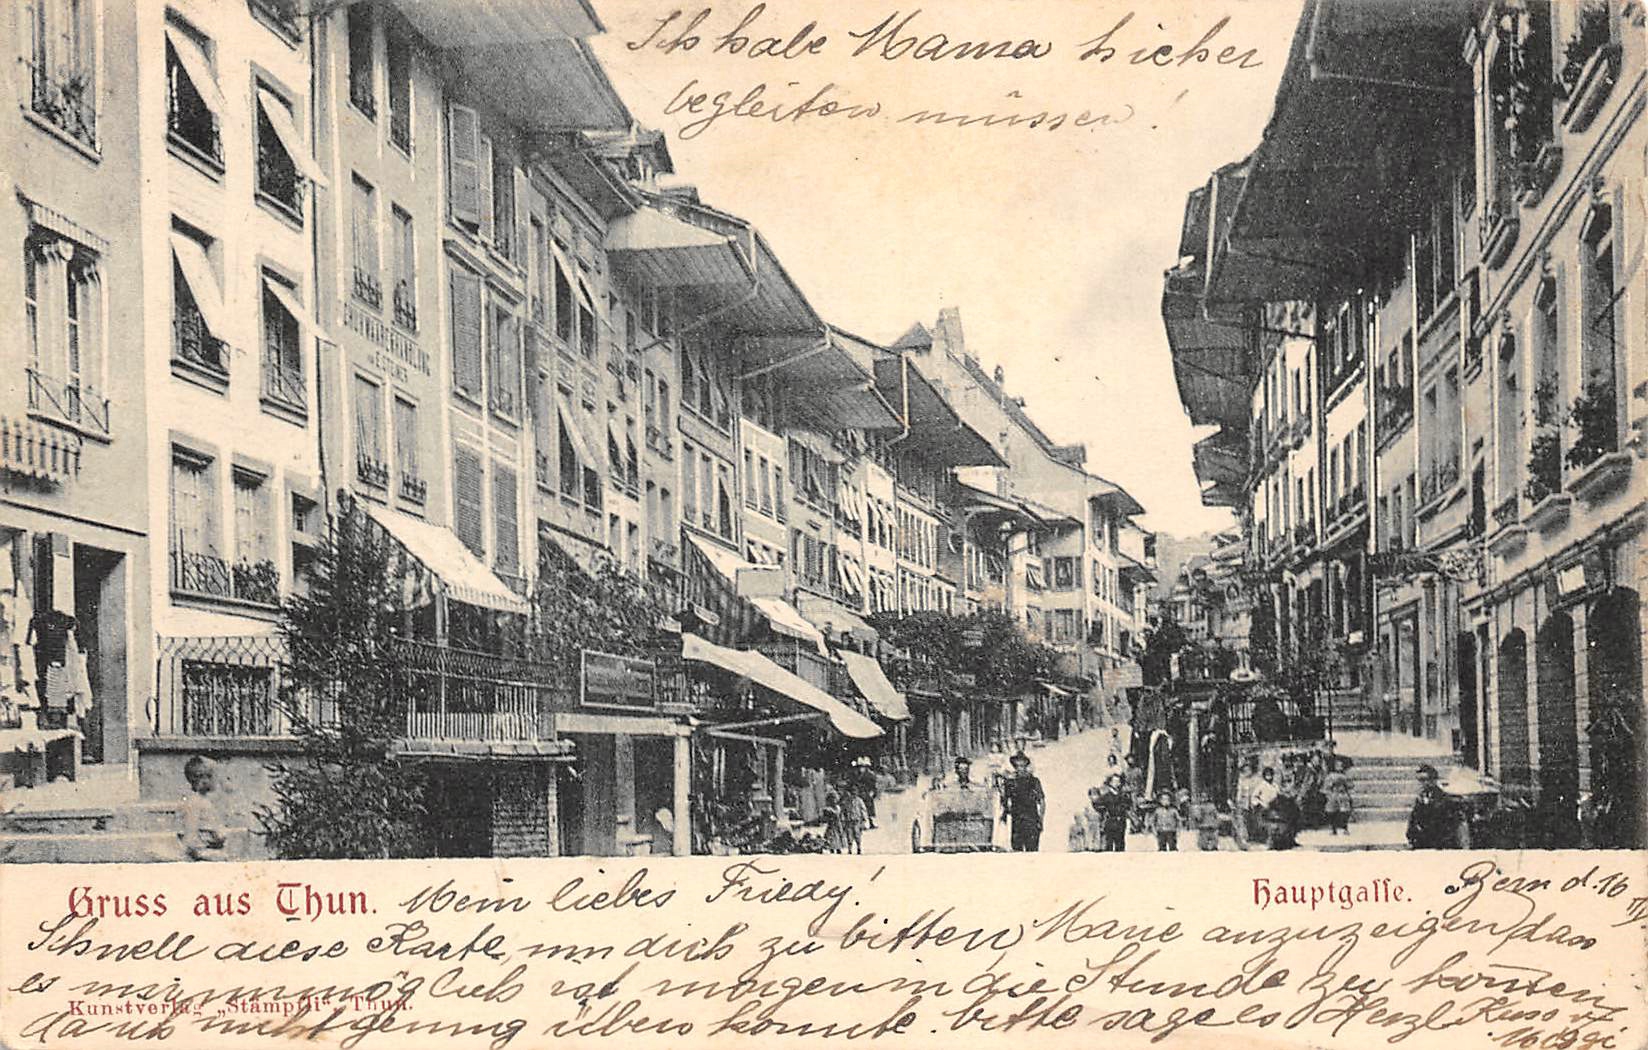 Ich habe Mama hieher
begleiten müssen!
CHUHWAARENHANDLUNG
Gruss aus Thun.
Mein liebes Friedy!
Hauptgasse.
Bern d. 16
Schnell diese Karte, um dich zu bitten, Marie anzuzeigen, dass
es mir unmöglich ist morgen in die Stunde zu kommen,
Kunstverlag „Stämpfli“, Thun.
da ich nicht genug üben konnte. bitte sage es Herzl. Kuss v.